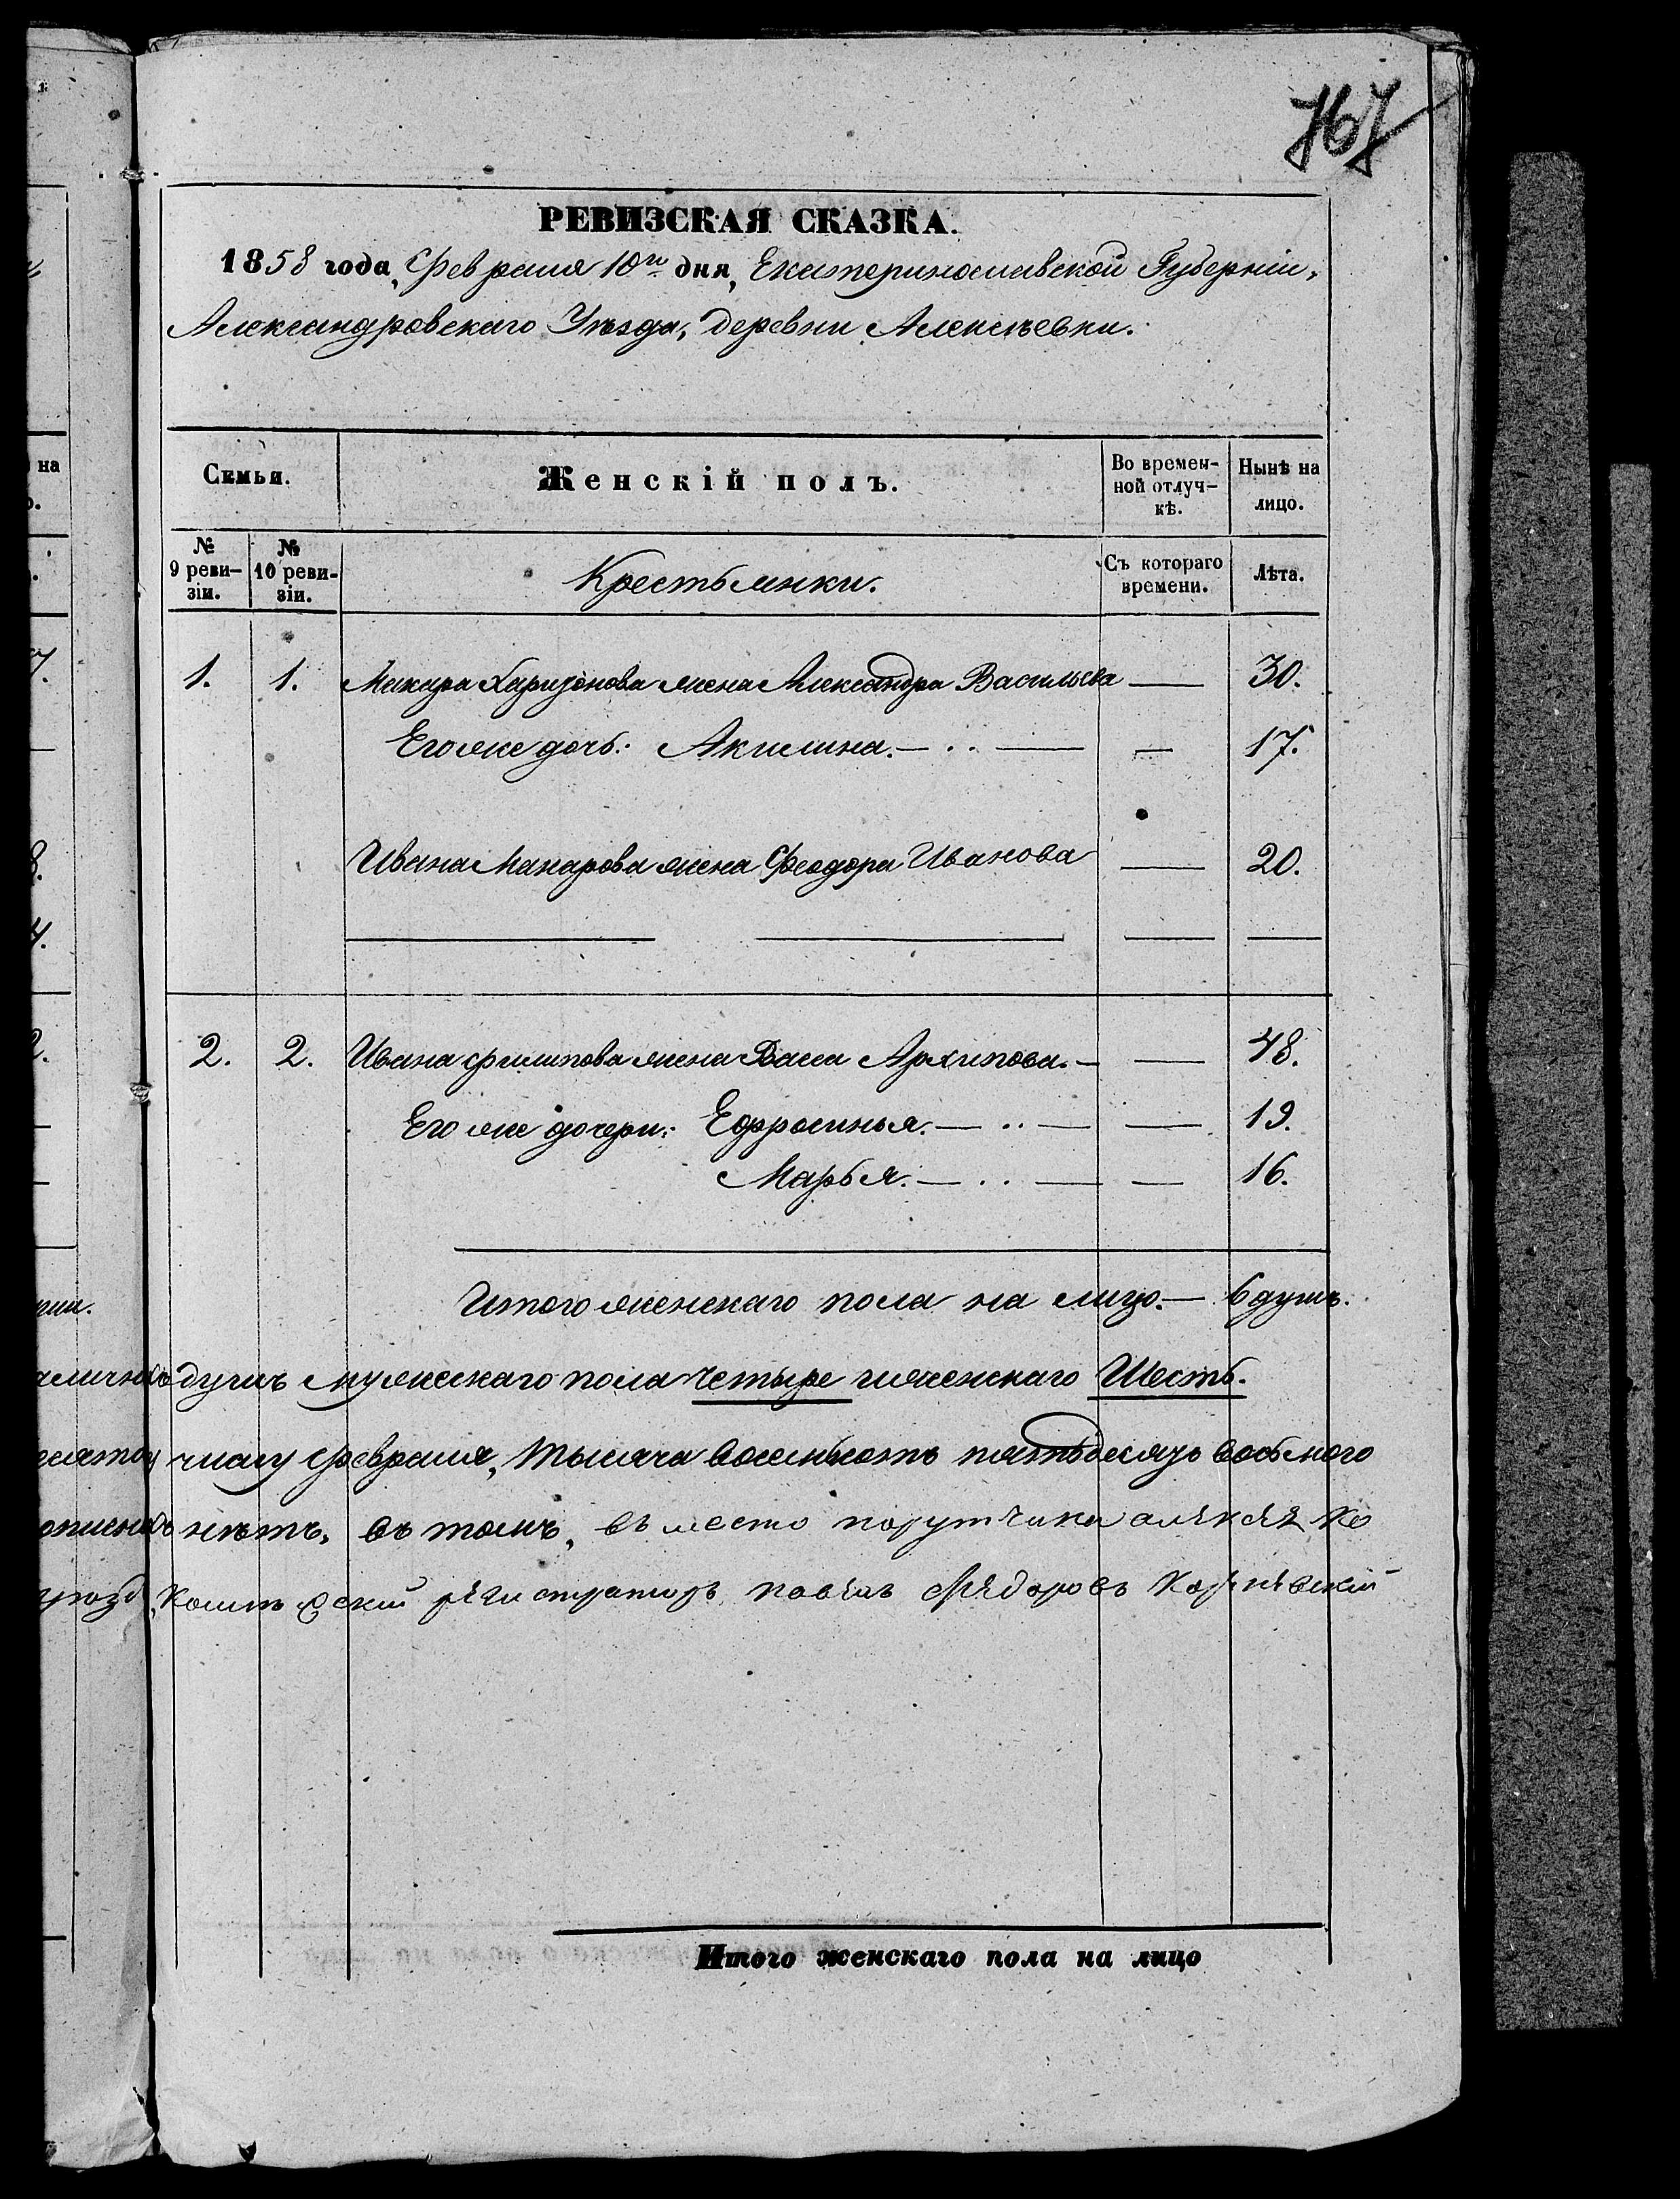 767
РЕВИЗСКАЯ СКАЗКА.
1858 года, Февраля 10го дня, Екатеринославской Губерніи,
Александровскаго Уѣзда, деревни Алексѣевки.
Семьи.
Женскій полъ.
Во времен-
ной отлуч-
кѣ.
Нынѣ на
лицо.
№
9 реви-
зіи.
№
10 реви-
зіи.
Крестьянки.
Съ котораго
времени.
Лѣта.
1. 1. Макара Харизонова жена Александра Васильева — 30.
Его же дочь: Акилина. — .. — — 17.
Ивана Макарова жена Феодора Иванова — 20.
2. 2. Ивана Филипова жена Васса Архипова. — — 48.
Его же дочери: Ефросинья. — .. — — 19.
Марья. — .. — — 16.
Итого женскаго пола на лицо. — 6 душъ.
душъ мужескаго пола четыре и женскаго Шесть.
числу Февраля, тысяча восемьсотъ пятьдесятъ восьмого
нѣтъ, въ томъ, въ место порутчика
регистраторъ
Итого женскаго пола на лицо